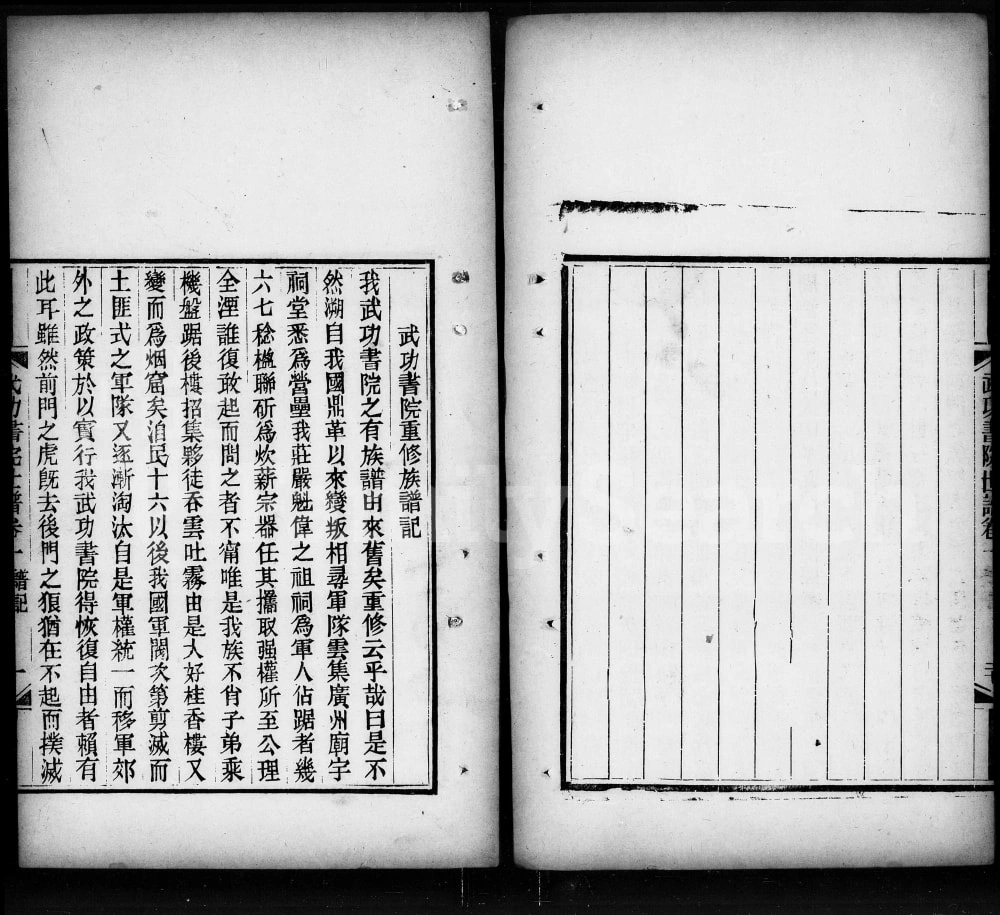 武功書院世譜卷一
武功書院重修族譜記
我武功書院之有族譜由來舊矣重修云乎哉曰是不
然溯自我國鼎革以來變叛相尋軍隊雲集廣州廟宇
祠堂悉為營壘我莊嚴魁偉之祖祠為軍人佔踞者幾
六七稔楹聯斫為炊薪宗器任其攜取强權所至公理
全湮誰復敢起而問之者不甯唯是我族不肖子弟乘
機盤踞後樓招集夥徒吞雲吐霧由是大好桂香樓又
變而爲烟窟矣洎民十六以後我國軍閥次第剪滅而
土匪式之軍隊又逐漸淘汰自是軍權統一而移軍郊
外之政策於以實行我武功書院得恢復自由者賴有
此耳雖然前門之虎旣去後門之狼猶在不起而撲滅
武功書院世譜卷一 譜記 一